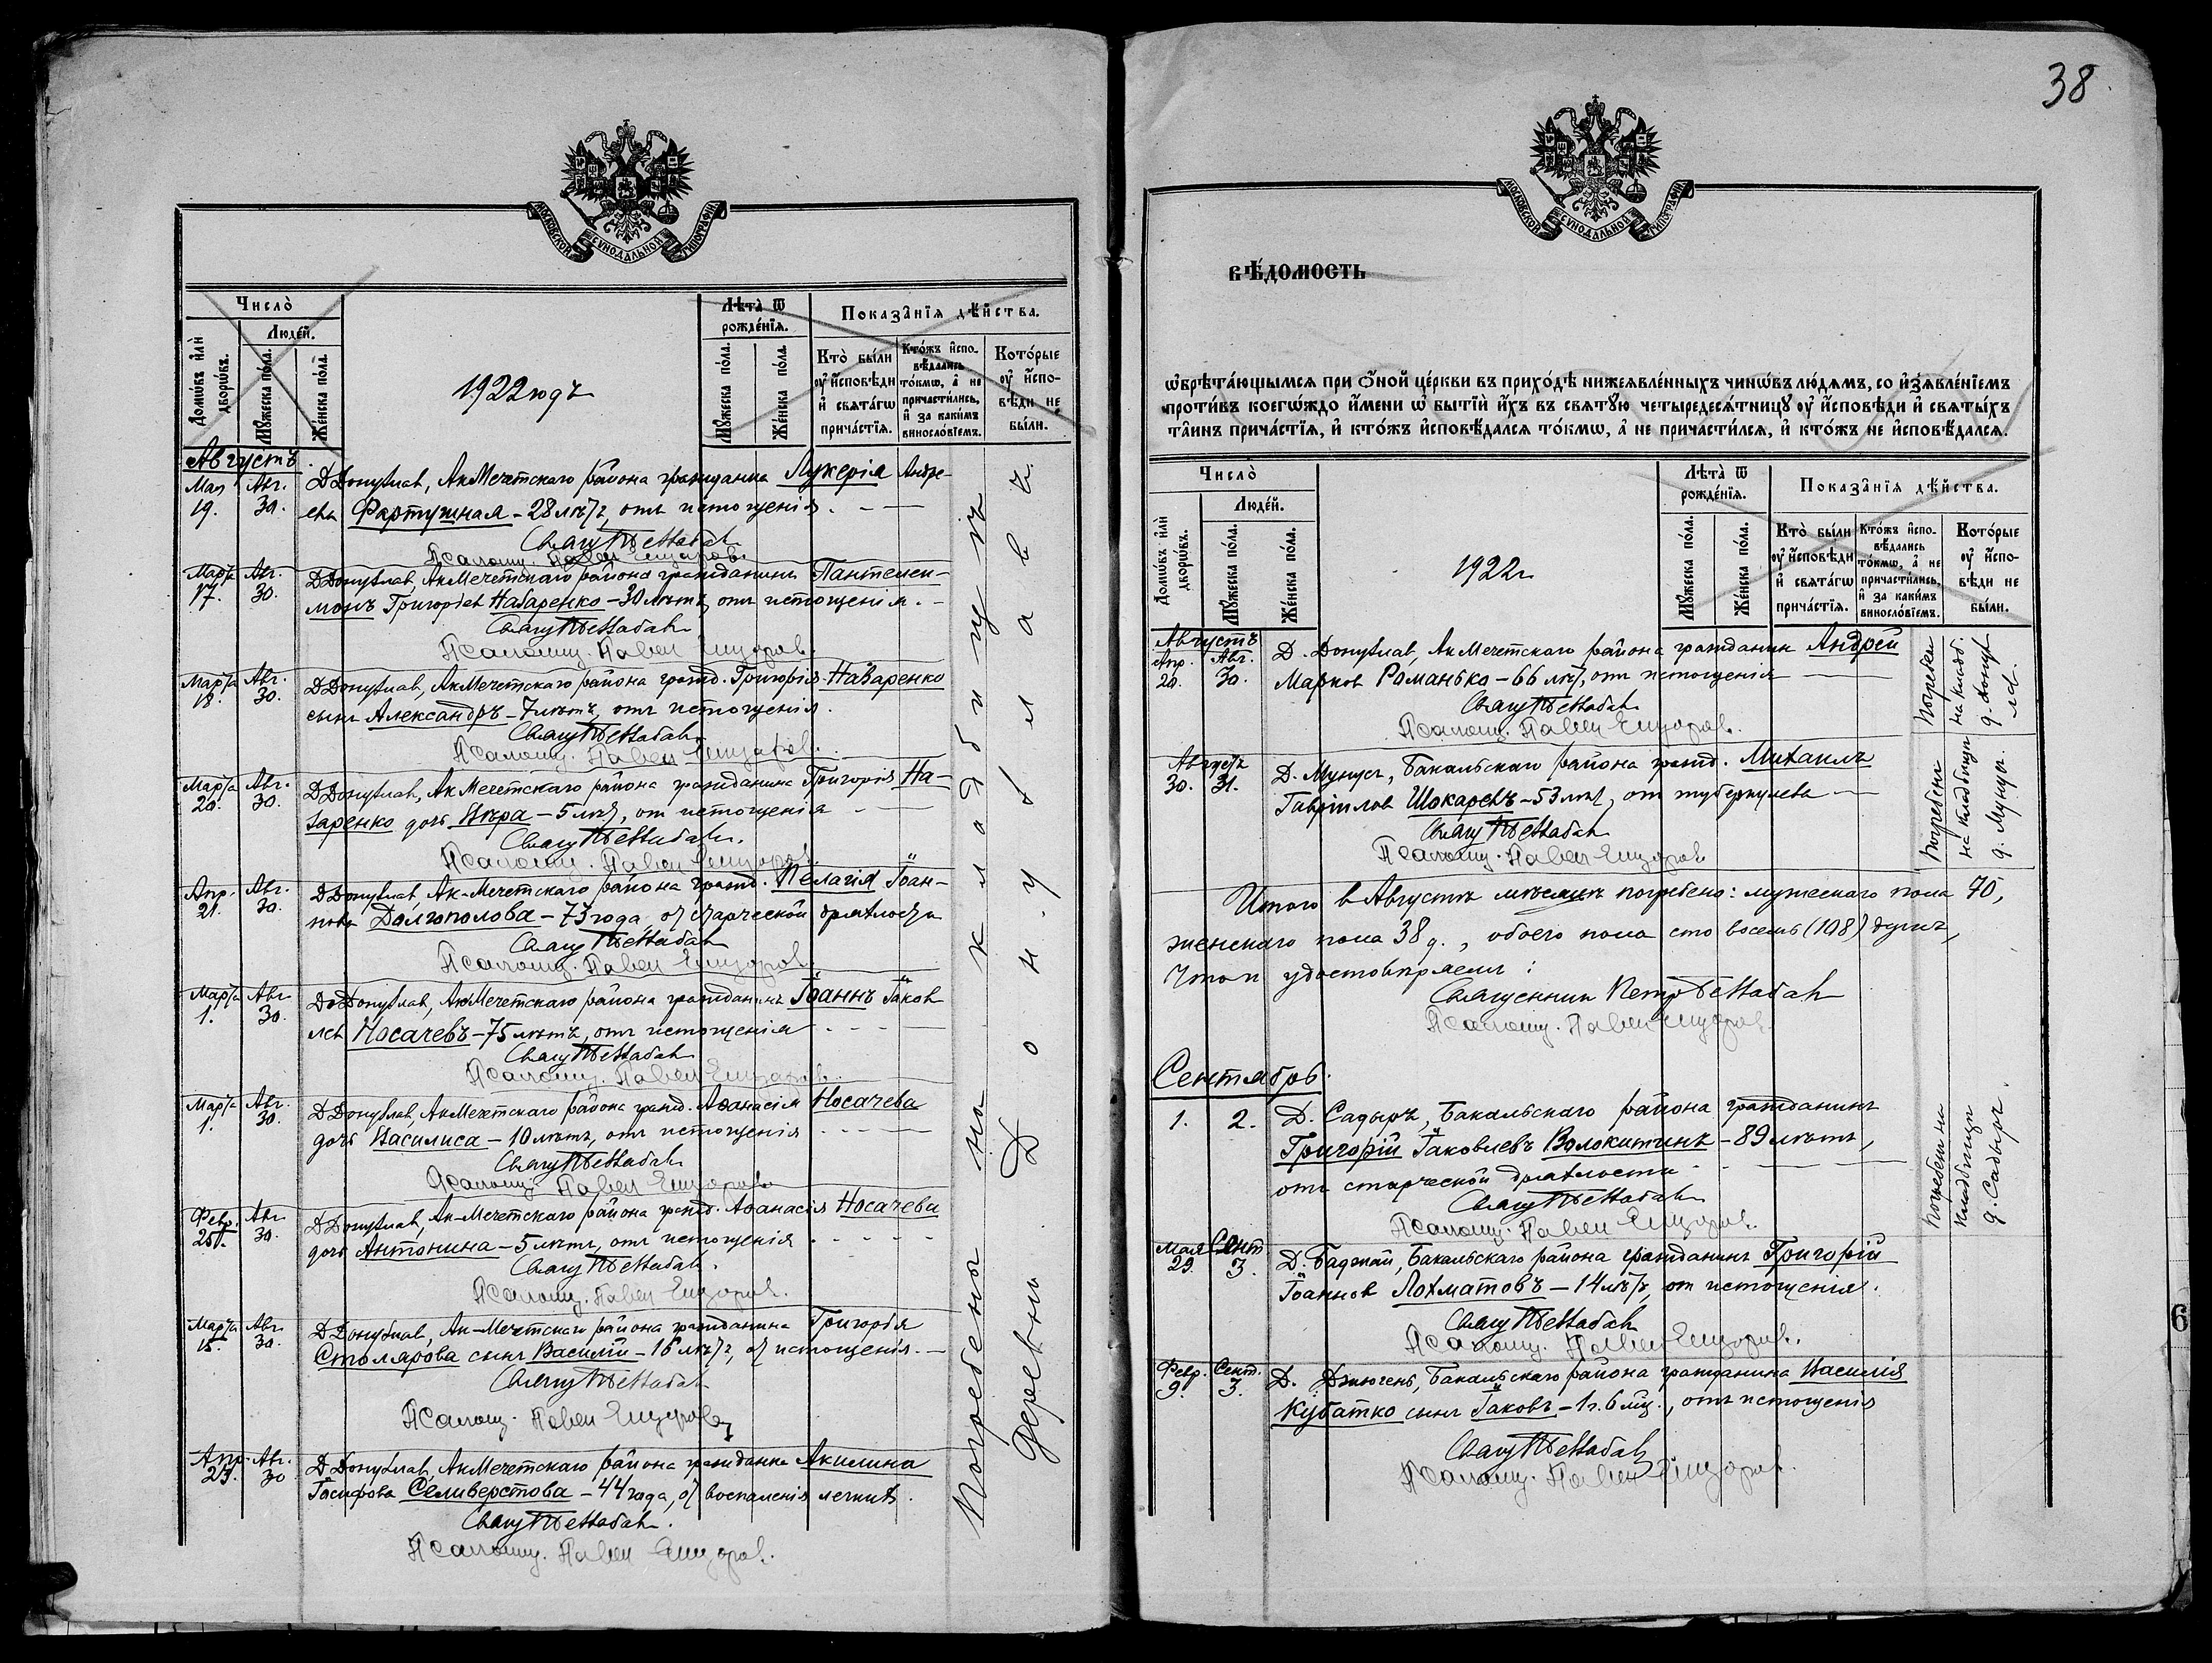 МОСКОВСКОЙ СѴНОДАЛЬНОЙ ТИПОГРАФІИ
Число̀
Домѡ́въ и҆лѝ дворѡ́въ.
Люде́й.
Мꙋ́жеска по́ла.
Же́нска по́ла.
1922 годъ
Лѣ́та ѿ рожде́нїѧ.
Мꙋ́жеска по́ла.
Же́нска по́ла.
Показа̑нїѧ дѣ́йства.
Кто̀ бы́ли ᲂу҆ и҆́сповѣди и҆ свѧта́гѡ прича́стїѧ.
Кто́жъ и҆спо-
вѣ́дались то́кмѡ, а҆ не причасти́лись, и҆ за каки́мъ винослόвїемъ.
Кото́рые ᲂу҆ и҆́спо-
вѣди не бы́ли.
Августъ.
Мая 19. Авг. 30. Д Донузлав, АкМечетскаго района гражданка Лукерія Андре-
ева Фартушная – 28 лѣтъ, отъ истощенія. - —
Свящ ПБеМабаѣ
Псаломщ. Павел
Марта 17. Авг. 30. Д Донузлав, АкМечетскаго района гражданинъ Пантелеи-
монъ Григорьев Назаренко – 30 лѣтъ, отъ истощенія. -
Псаломщ. Павел
Марта 18. Авг. 30. Д Донузлав, АкМечетскаго района гражд. Григорія Назаренко
сынъ Александръ – 7 лѣтъ, отъ истощенія.
Псаломщ. Павел
Марта 20. Авг. 30. Д Донузлав, Ак Мечетскаго района гражданина Григорія На-
заренко дочь Вѣра – 5 лѣтъ, от истощенія - —
Псаломщ. Павел
Апр. 21. Авг. 30. Д Донузлав, Ак-Мечетскаго района гражд. Пелагія Іоан-
нова Долгополова – 73 года от старческой дряхлости
Псаломщ. Павел
Марта 1. Авг. 30. Д Донузлав, АкМечетскаго района гражданинъ Іоаннъ Іаков
лев Носачевъ – 75 лѣтъ, отъ истощенія - - - —
Псаломщ. Павел
Марта 1. Авг. 30. Д Донузлав, АкМечетскаго района гражд. Аѳанасія Носачева
дочь Василиса – 10 лѣтъ, отъ истощенія - - - —
Псаломщ. Павел
Февр. 25. Авг. 30. Д Донузлав, Ак-Мечетскаго района гражд. Аѳанасія Носачева
дочь Антонина – 5 лѣтъ, отъ истощенія - - - - -
Псаломщ. Павел
Марта 15. Авг. 30. Д Донузлав, Ак-Мечетскаго района гражданина Григорія
Столярова сынъ Василій – 16 лѣтъ, от истощенія. —
Псаломщ. Павел
Апр. 23. Авг. 30 Д Донузлав, АкМечетскаго района гражданка Акилина
Іосифова Селиверстова – 44 года, от воспаленія легкихъ.
Псаломщ. Павел
Погребены на кладбищѣ
деревни Донузлавъ.
38
МОСКОВСКОЙ СѴНОДАЛЬНОЙ ТИПОГРАФІИ
вѣ́домость
ѡ҆брѣта́ющымсѧ при ѻ҆́ной це́ркви въ прихо́дѣ нижеѧвле́нныхъ чинѡ́въ лю́демъ, со и҆з̾ѧвле́нїемъ
проти́въ коегѡ́ждо и҆́мени ѡ҆ бытїѝ и҆́хъ въ свѧтꙋ́ю четыредесѧ́тницꙋ ᲂу҆ и҆́сповѣди и҆ свѧты́хъ
та̑инъ прича́стїѧ, и҆ кто́жъ и҆сповѣ́далсѧ то́кмѡ, а҆ не причасти́лсѧ, и҆ кто́жъ не и҆сповѣ́далсѧ.
Число̀
Домѡ́въ и҆лѝ дворѡ́въ.
Люде́й.
Мꙋ́жеска по́ла.
Же́нска по́ла.
1922 г.
Лѣ́та ѿ рожде́нїѧ.
Мꙋ́жеска по́ла.
Же́нска по́ла.
Показа̑нїѧ дѣ́йства.
Кто̀ бы́ли ᲂу҆ и҆́сповѣди и҆ свѧта́гѡ прича́стїѧ.
Кто́жъ и҆спо-
вѣ́дались то́кмѡ, а҆ не причасти́лись, и҆ за каки́мъ винослόвїемъ.
Кото́рые ᲂу҆ и҆́спо-
вѣди не бы́ли.
Августъ
Апр. 20. Авг. 30. Д. Донузлав, Ак Мечетскаго района гражданин Андрей
Марков Романько – 66 лѣт, от истощенія —
Псаломщ. Павел
Погребен на кладб. д. Донузлав
Августъ
30. 31. Д. Мунус, Бакальскаго района гражд. Михаилъ
Гавріилов Шокаревъ – 53 лѣт, от туберкулеза —
Псаломщ. Павел
Погребенъ на кладбищѣ д. Мунус.
Итого в Августѣ мѣсяцѣ погребено: мужескаго пола 70,
женскаго пола 38 д., обоего пола сто восемь (108) душъ,
что и удостовѣряем:
Священник Петр
Псаломщ. Павел
Сентябрь.
1. 2. Д. Садыръ, Бакальскаго района гражданинъ
Григорій Іаковлевъ Волокитинъ – 89 лѣтъ,
отъ старческой дряхлости
Псаломщ. Павел
Погребенъ на кладбищѣ д. Садыръ.
Мая 29. Сент 3. Д. Баджай, Бакальскаго района гражданинъ Григорій
Іоаннов Лохматовъ – 14 лѣтъ, от истощенія.
Псаломщ. Павел
Февр. 9. Сент. 3. Д. Джючень, Бакальскаго района гражданина Василія
Кубатко сынъ Іаковъ – 1 г. 6 мц., отъ истощенія
Псаломщ. Павел
6